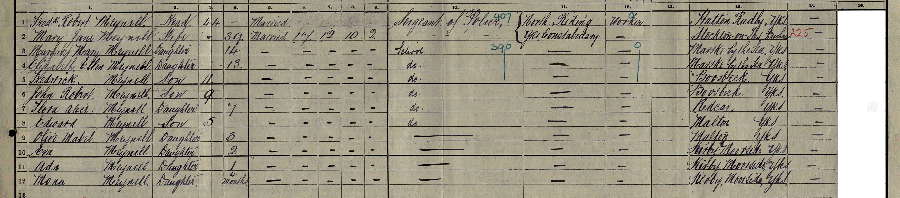 1 Fredk Robert Meynell Head 44 – Married Sergeant of Police, 907 North Riding Yks Constabulary Worker Hutton Rudby, Yks –
2 Mary Jane Meynell Wife – 39 Married 17 12 10 2 Stockton-on- 225
3 Mary Meynell Daughter – 14 School 390 0 Marske by the Sea, Yks –
4 Elizabeth Ellen Meynell Daughter – 13 do. Marske by the Sea, Yks –
5 Fredrick Meynell Son 11 do. Boosbeck Yks –
6 John Robert Meynell Son 9 do. Boosbeck Yks –
7 Alice Meynell Daughter – 7 do. Redcar Yks –
8 Edward Meynell Son 5 do. Malton Yks –
9 Olive Mabel Meynell Daughter – 3 Malton Yks –
10 Meynell Daughter – 2 Kirby Moorside, Yks –
11 Ada Meynell Daughter – 1 Kirby Moorside, Yks –
12 Meynell Daughter – months Kirby Moorside, Yks –
13